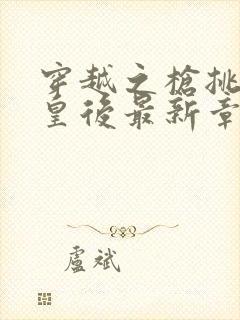 穿越之槍挑
皇後最新章
盧斌